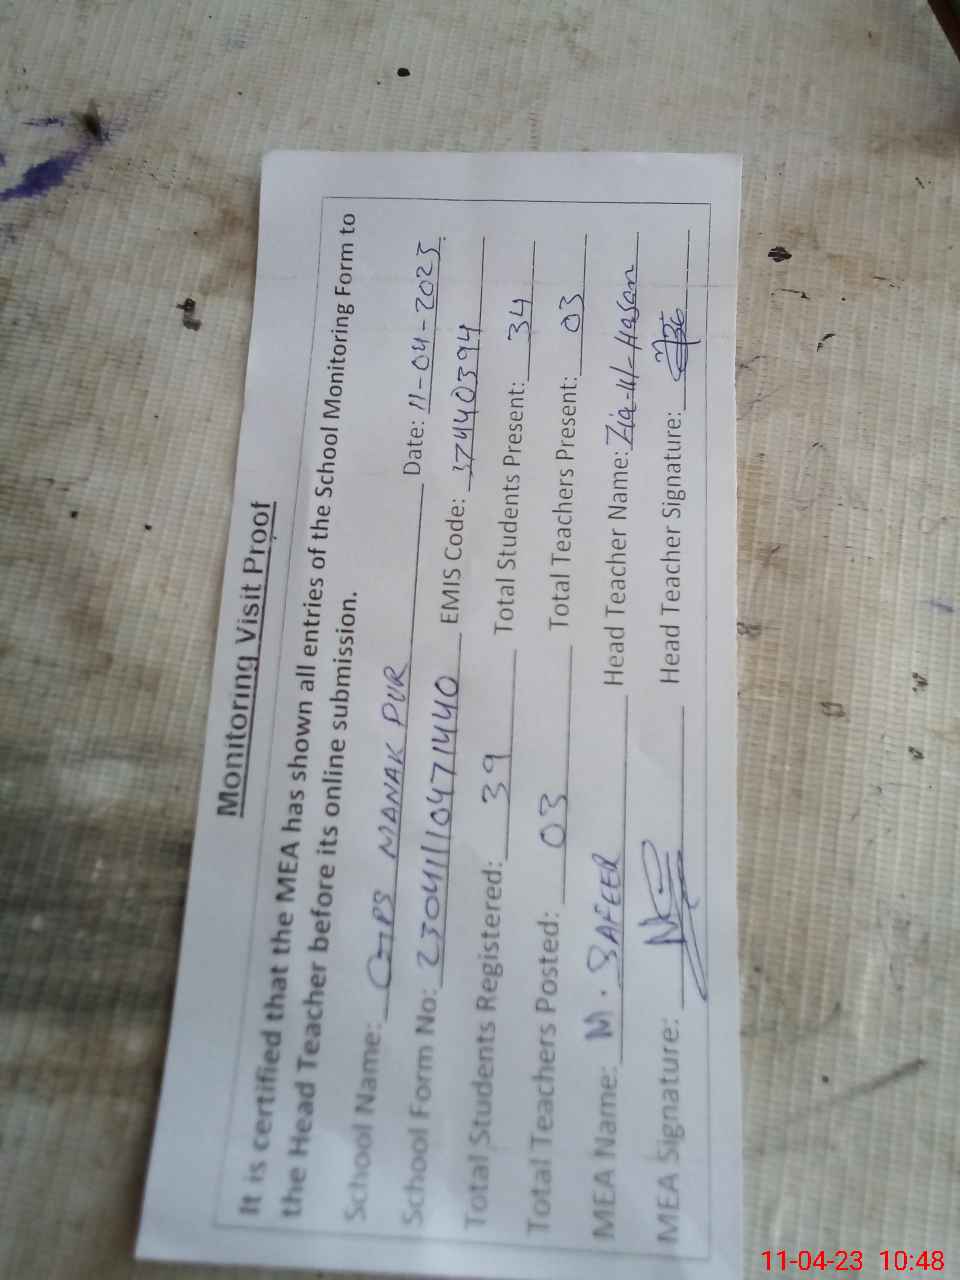 Monitoring Visit Proof
It is certified that the MEA has shown all entries of the School Monitoring Form to
the Head Teacher before its online submission.
School Name: GPS MANAK PUR Date: 11-04-2023
School Form No: 23041110471440 EMIS Code: 37440394
Total Students Registered: 39 Total Students Present: 34
Total Teachers Posted: 03 Total Teachers Present: 03
MEA Name: M. SAFEER Head Teacher Name: Zia-ul-Hasan
MEA Signature: Head Teacher Signature:
11-04-23 10:48